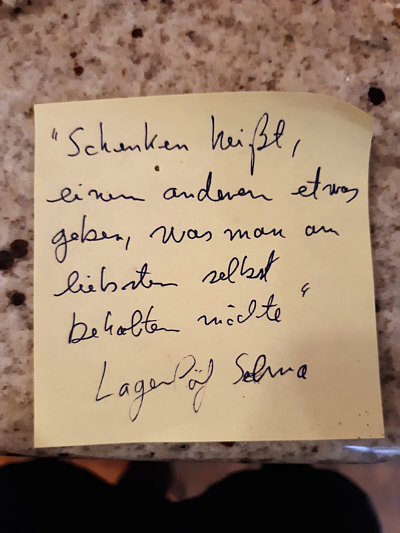 "Schenken heißt,
einem anderen etwas
geben, was man am
liebsten selbst
behalten möchte"
Lagerlöf Selma